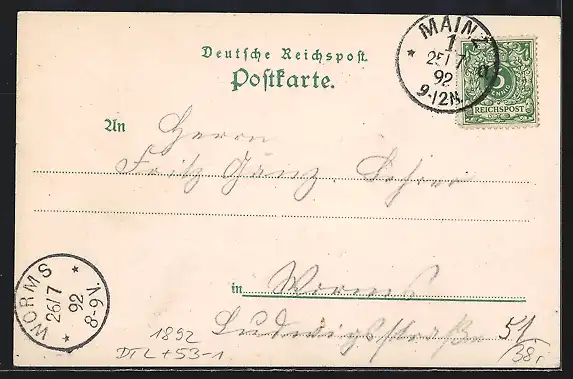 MAINZ
1
25/7
92
9-12N.
5
REICHSPOST
Deutsche Reichspost.
Postkarte.
An Herrn
Fritz Ganz. Lehrer
in Worms
Ludwigsstraße 51.
WORMS
26/7
92
8-9V.
1892
DTL +53-1
38,-